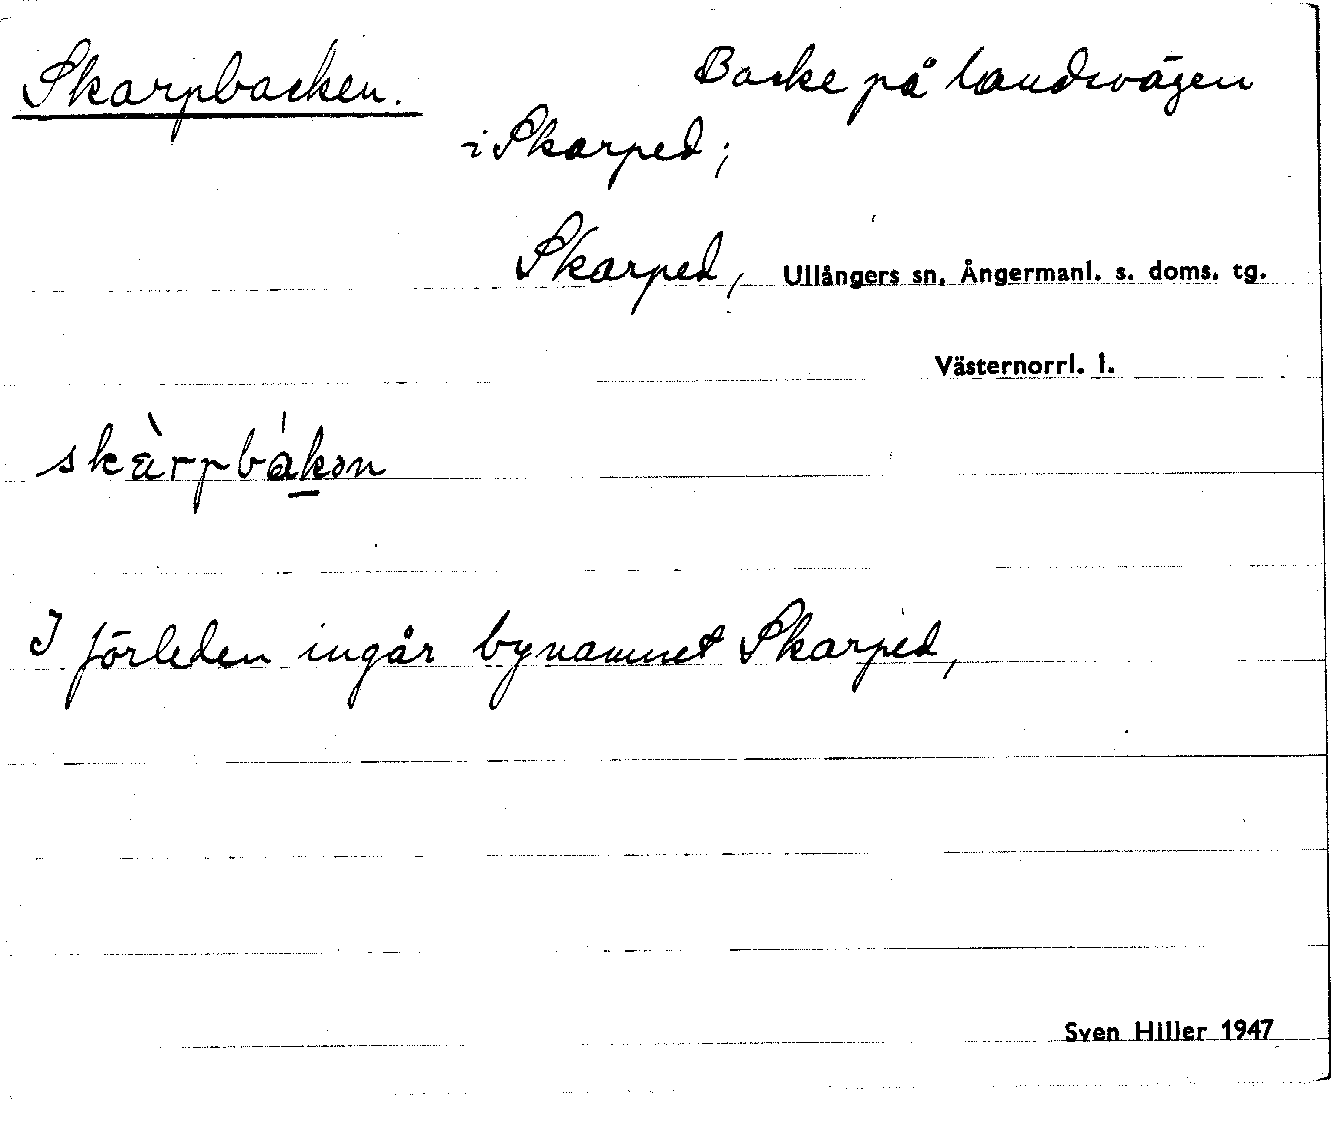 Skarpbacken. Backe på landsvägen
i Skarped;
Skarped, Ullångers sn, Ångermanl. s. doms. tg.
Västernorrl. l.
skàrpbákən
I förleden ingår bynamnet Skarped,
Sven Hiller 1947